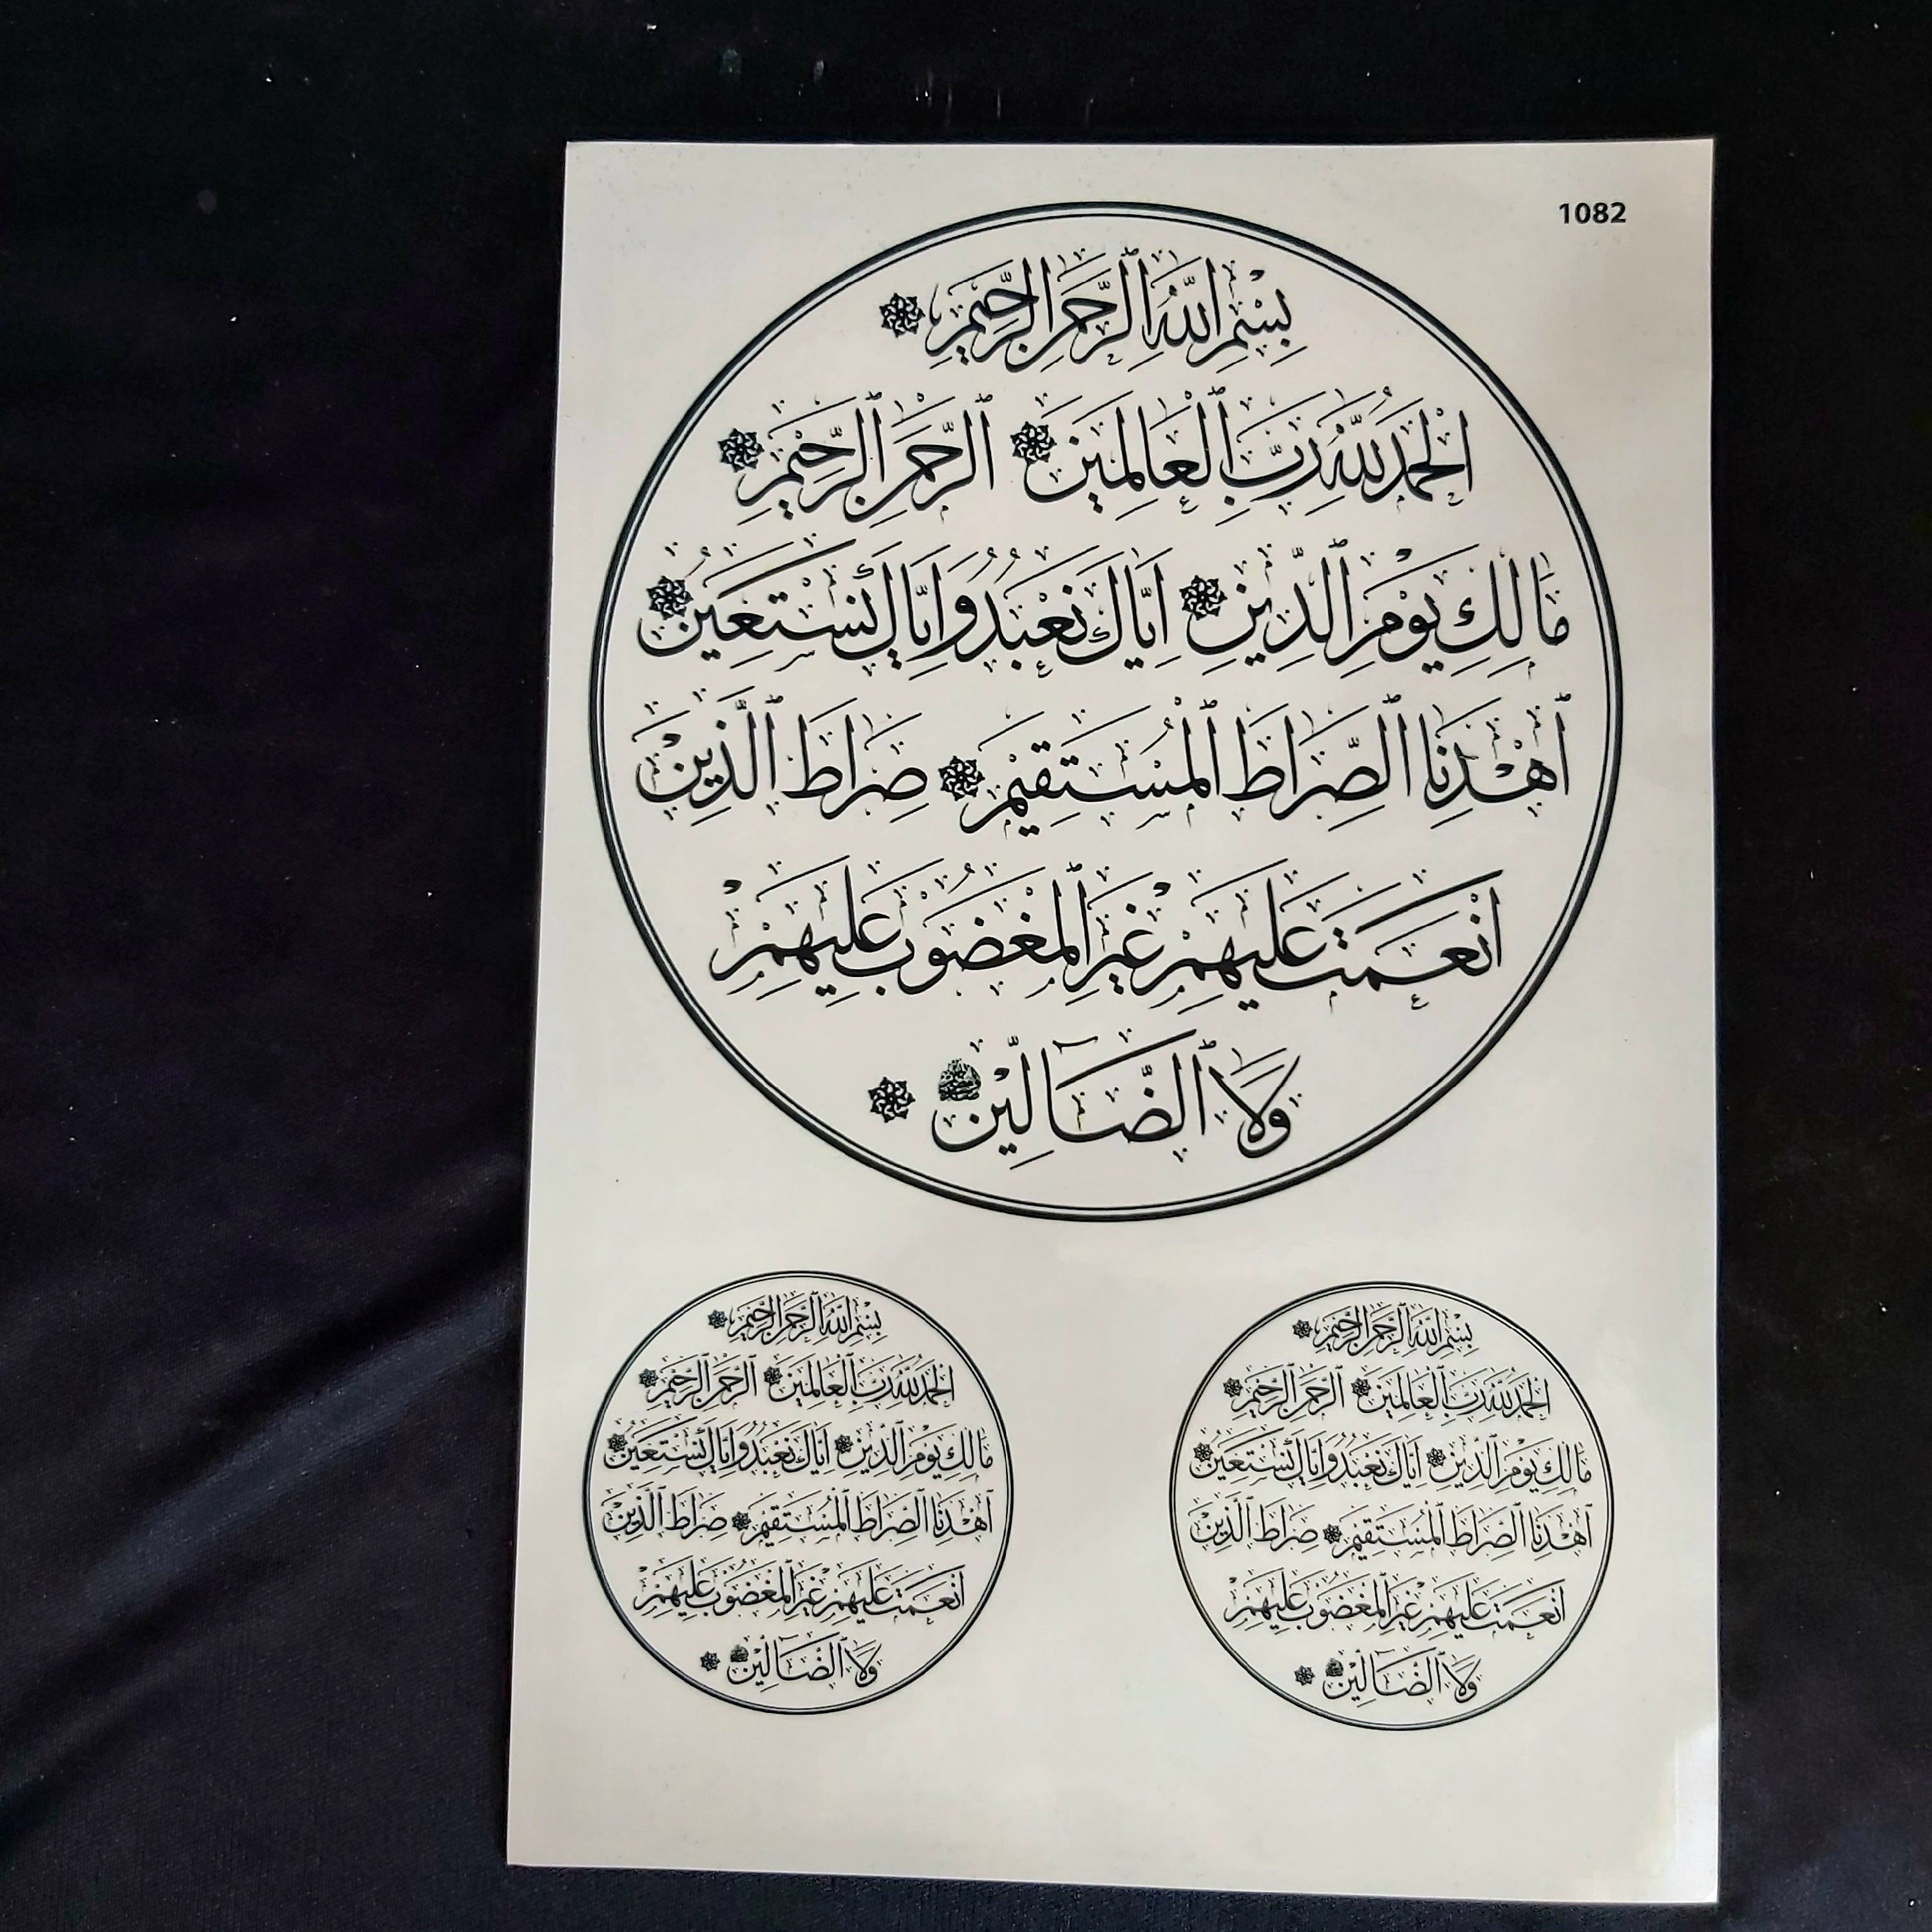 1082
بِسْمِ اللهِ الرَّحْمَنِ الرَّحِيْمِ
الْحَمْدُ لِلّٰهِ رَبِّ الْعَالَمِينَ الرَّحْمَنِ الرَّحِيْمِ
مَالِكِ يَوْمِ الدِّيْنِ اِيَّاكَ نَعْبُدُ وَاِيَّاكَ نَسْتَعِيْنُ
اهْدِنَا الصِّرَاطَ الْمُسْتَقِيْمَ صِرَاطَ الَّذِيْنَ
اَنْعَمْتَ عَلَيْهِمْ غَيْرِ الْمَغْضُوْبِ عَلَيْهِمْ
وَلَا الضَّآلِّيْنَ
بِسْمِ اللهِ الرَّحْمَنِ الرَّحِيْمِ
الْحَمْدُ لِلّٰهِ رَبِّ الْعَالَمِينَ الرَّحْمَنِ الرَّحِيْمِ
مَالِكِ يَوْمِ الدِّيْنِ اِيَّاكَ نَعْبُدُ وَاِيَّاكَ نَسْتَعِيْنُ
اهْدِنَا الصِّرَاطَ الْمُسْتَقِيْمَ صِرَاطَ الَّذِيْنَ
اَنْعَمْتَ عَلَيْهِمْ غَيْرِ الْمَغْضُوْبِ عَلَيْهِمْ
وَلَا الضَّآلِّيْنَ
بِسْمِ اللهِ الرَّحْمَنِ الرَّحِيْمِ
الْحَمْدُ لِلّٰهِ رَبِّ الْعَالَمِينَ الرَّحْمَنِ الرَّحِيْمِ
مَالِكِ يَوْمِ الدِّيْنِ اِيَّاكَ نَعْبُدُ وَاِيَّاكَ نَسْتَعِيْنُ
اهْدِنَا الصِّرَاطَ الْمُسْتَقِيْمَ صِرَاطَ الَّذِيْنَ
اَنْعَمْتَ عَلَيْهِمْ غَيْرِ الْمَغْضُوْبِ عَلَيْهِمْ
وَلَا الضَّآلِّيْنَ